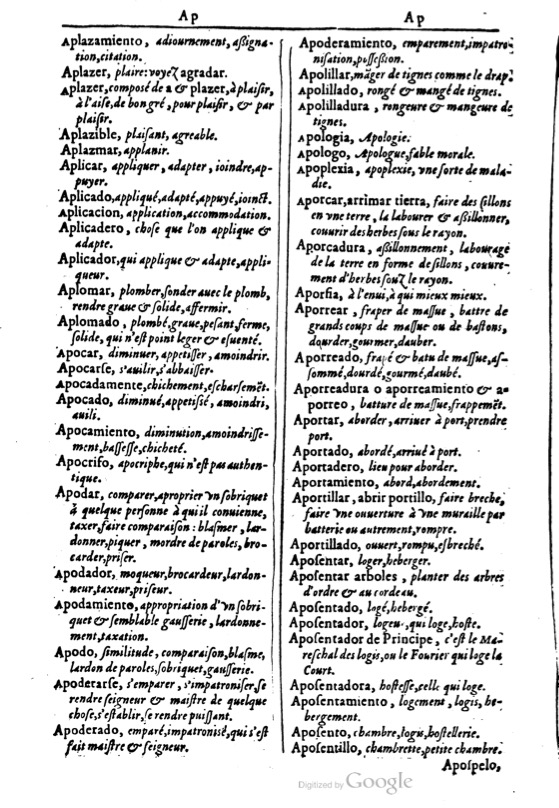 Ap
Aplazamiento, adiournement, aßigna-
tion, citation.
Aplazer, plaire: voyez agradar.
Aplazer, composé de a & plazer, à plaiſir,
à l'aiſe, de bon gré, pour plaiſir, & par
plaiſir.
Aplazible, plaiſant, agreable.
Aplazmar, applanir.
Aplicar, appliquer, adapter, ioindre, ap-
puyer.
Aplicado, appliqué, adapté, appuyé, ioinct.
Aplicacion, application, accommodation.
Aplicadero, choſe que l'on applique &
adapte.
Aplicador, qui applique & adapte, appli-
queur.
Aplomar, plomber, ſonder auec le plomb,
rendre graue & ſolide, affermir.
Aplomado, plombé, graue, peſant, ferme,
ſolide, qui n'est point leger & eſuenté.
Apocar, diminuer, appetiſſer, amoindrir.
Apocarſe, s'auilir, s'abbaiſſer.
Apocadamente, chichement, eſcharſemẽt.
Apocado, diminué, appetiſſé, amoindri,
auili.
Apocamiento, diminution, amoindriſſe-
ment, baſſeſſe, chicheté.
Apocrifo, apocriphe, qui n'eſt pas authen-
tique.
Apodar, comparer, aproprier vn ſobriquet
à quelque perſonne à qui il conuienne,
taxer, faire comparaiſon: blaſmer, lar-
donner, piquer, mordre de paroles, bro-
carder, priſer.
Apodador, moqueur, brocardeur, lardon-
neur, taxeur, priſeur.
Apodamiento, appropriation d'vn ſobri-
quet & ſemblable gauſſerie, lardonne-
ment, taxation.
Apodo, ſimilitude, comparaiſon, blaſme,
lardon de paroles, ſobriquet, gauſſerie.
Apoderarſe, s'emparer, s'impatroniſer, ſe
rendre ſeigneur & maiſtre de quelque
choſe, s'eſtablir, ſe rendre puiſſant.
Apoderado, emparé, impatroniſé, qui s'eſt
fait maiſtre & ſeigneur.
Ap
Apoderamiento, emparement, impatro-
niſation, poſſeſſion.
Apolillar, mãger de tignes comme le drap.
Apolillado, rongé & mangé de tignes.
Apolilladura, rongeure & mangeure de
tignes.
Apologia, Apologie.
Apologo, Apologue, fable morale.
Apoplexia, apoplexie, vne ſorte de mala-
die.
Aporcar, arrimar tierra, faire des ſillons
en vne terre, la labourer & aßillonner,
couurir des herbes ſous le rayon.
Aporcadura, aßillonnement, labourage
de la terre en forme de ſillons, couure-
ment d'herbes ſouz le rayon.
Aporfia, à l'enui, à qui mieux mieux.
Aporrear, fraper de maſſue, battre de
grands coups de maſſue ou de baſtons,
dourder, gourmer, dauber.
Aporreado, frapé & batu de maſſue, aſ-
ſommé, dourdé, gourmé, daubé.
Aporreadura o aporreamiento & a-
porreo, batture de maſſue, frappemẽt.
Aportar, aborder, arriuer à port, prendre
port.
Aportado, abordé, arriué à port.
Aportadero, lieu pour aborder.
Aportamiento, abord, abordement.
Aportillar, abrir portillo, faire breche,
faire vne ouuerture à vne muraille par
batterie ou autrement, rompre.
Aportillado, ouuert, rompu, eſbreché.
Apoſentar, loger, heberger.
Apoſentar arboles, planter des arbres
d'ordre & au cordeau.
Apoſentado, logé, hebergé.
Apoſentador, logeur, qui loge, hoſte.
Apoſentador de Principe, c'eſt le Ma-
reſchal des logis, ou le Fourier qui loge la
Court.
Apoſentadora, hoſteſſe, celle qui loge.
Apoſentamiento, logement, logis, he-
bergement.
Apoſento, chambre, logis, hoſtellerie.
Apoſentillo, chambrette, petite chambre.
Apoſpelo,
Digitized by Google